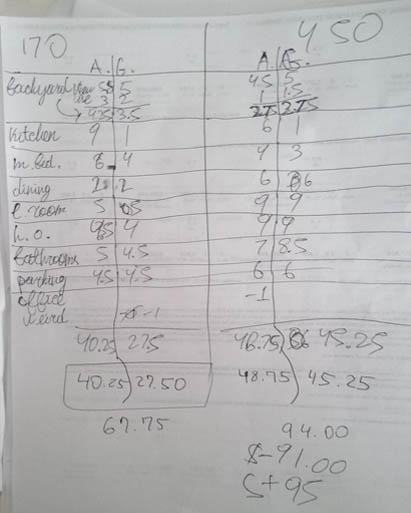 170 450
A. G. A. G.
Backyard View 5 5 4.5 5
use 3 2 1 1.5
4.25 3.5 2.75 2.75
Kitchen 9 1 6 1
m. bed. 6 4 4 3
dining 2 2 6 6
l. room 5 5 9 9
h.o. 4 9 9
Bathrooms 5 4.5 7 8.5
parking 4.5 4.5 6 6
office -1
-1
40.25 27.5 48.75 45.25
40.25 27.50 48.75 45.25
67.75
94.00
S-91.00
S+95